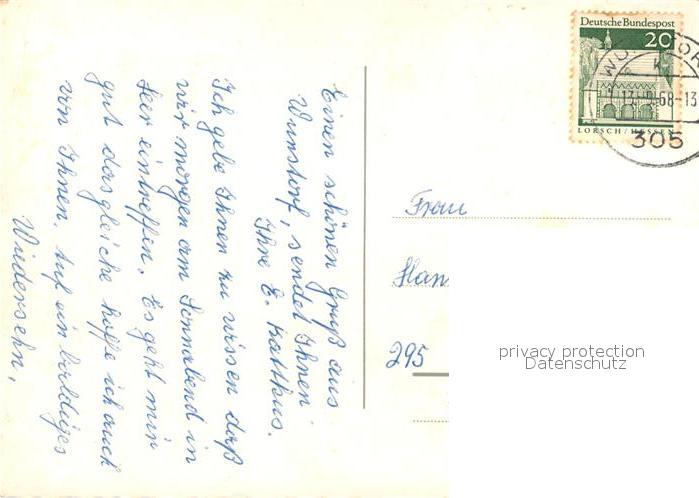 Einen schönen Gruß aus
Wunstorf, sendet Ihnen
Ihre E. Kalthus.
Ich gebe Ihnen zu wissen daß
wir morgen am Sonnabend in
Leer eintreffen. Es geht mir
gut dasgleiche hoffe ich auch
von Ihnen. Auf ein baldiges
Wiedersehn.
Deutsche Bundespost
20
LORSCH/HESSEN
305
Frau
Han
295
privacy protection
Datenschutz